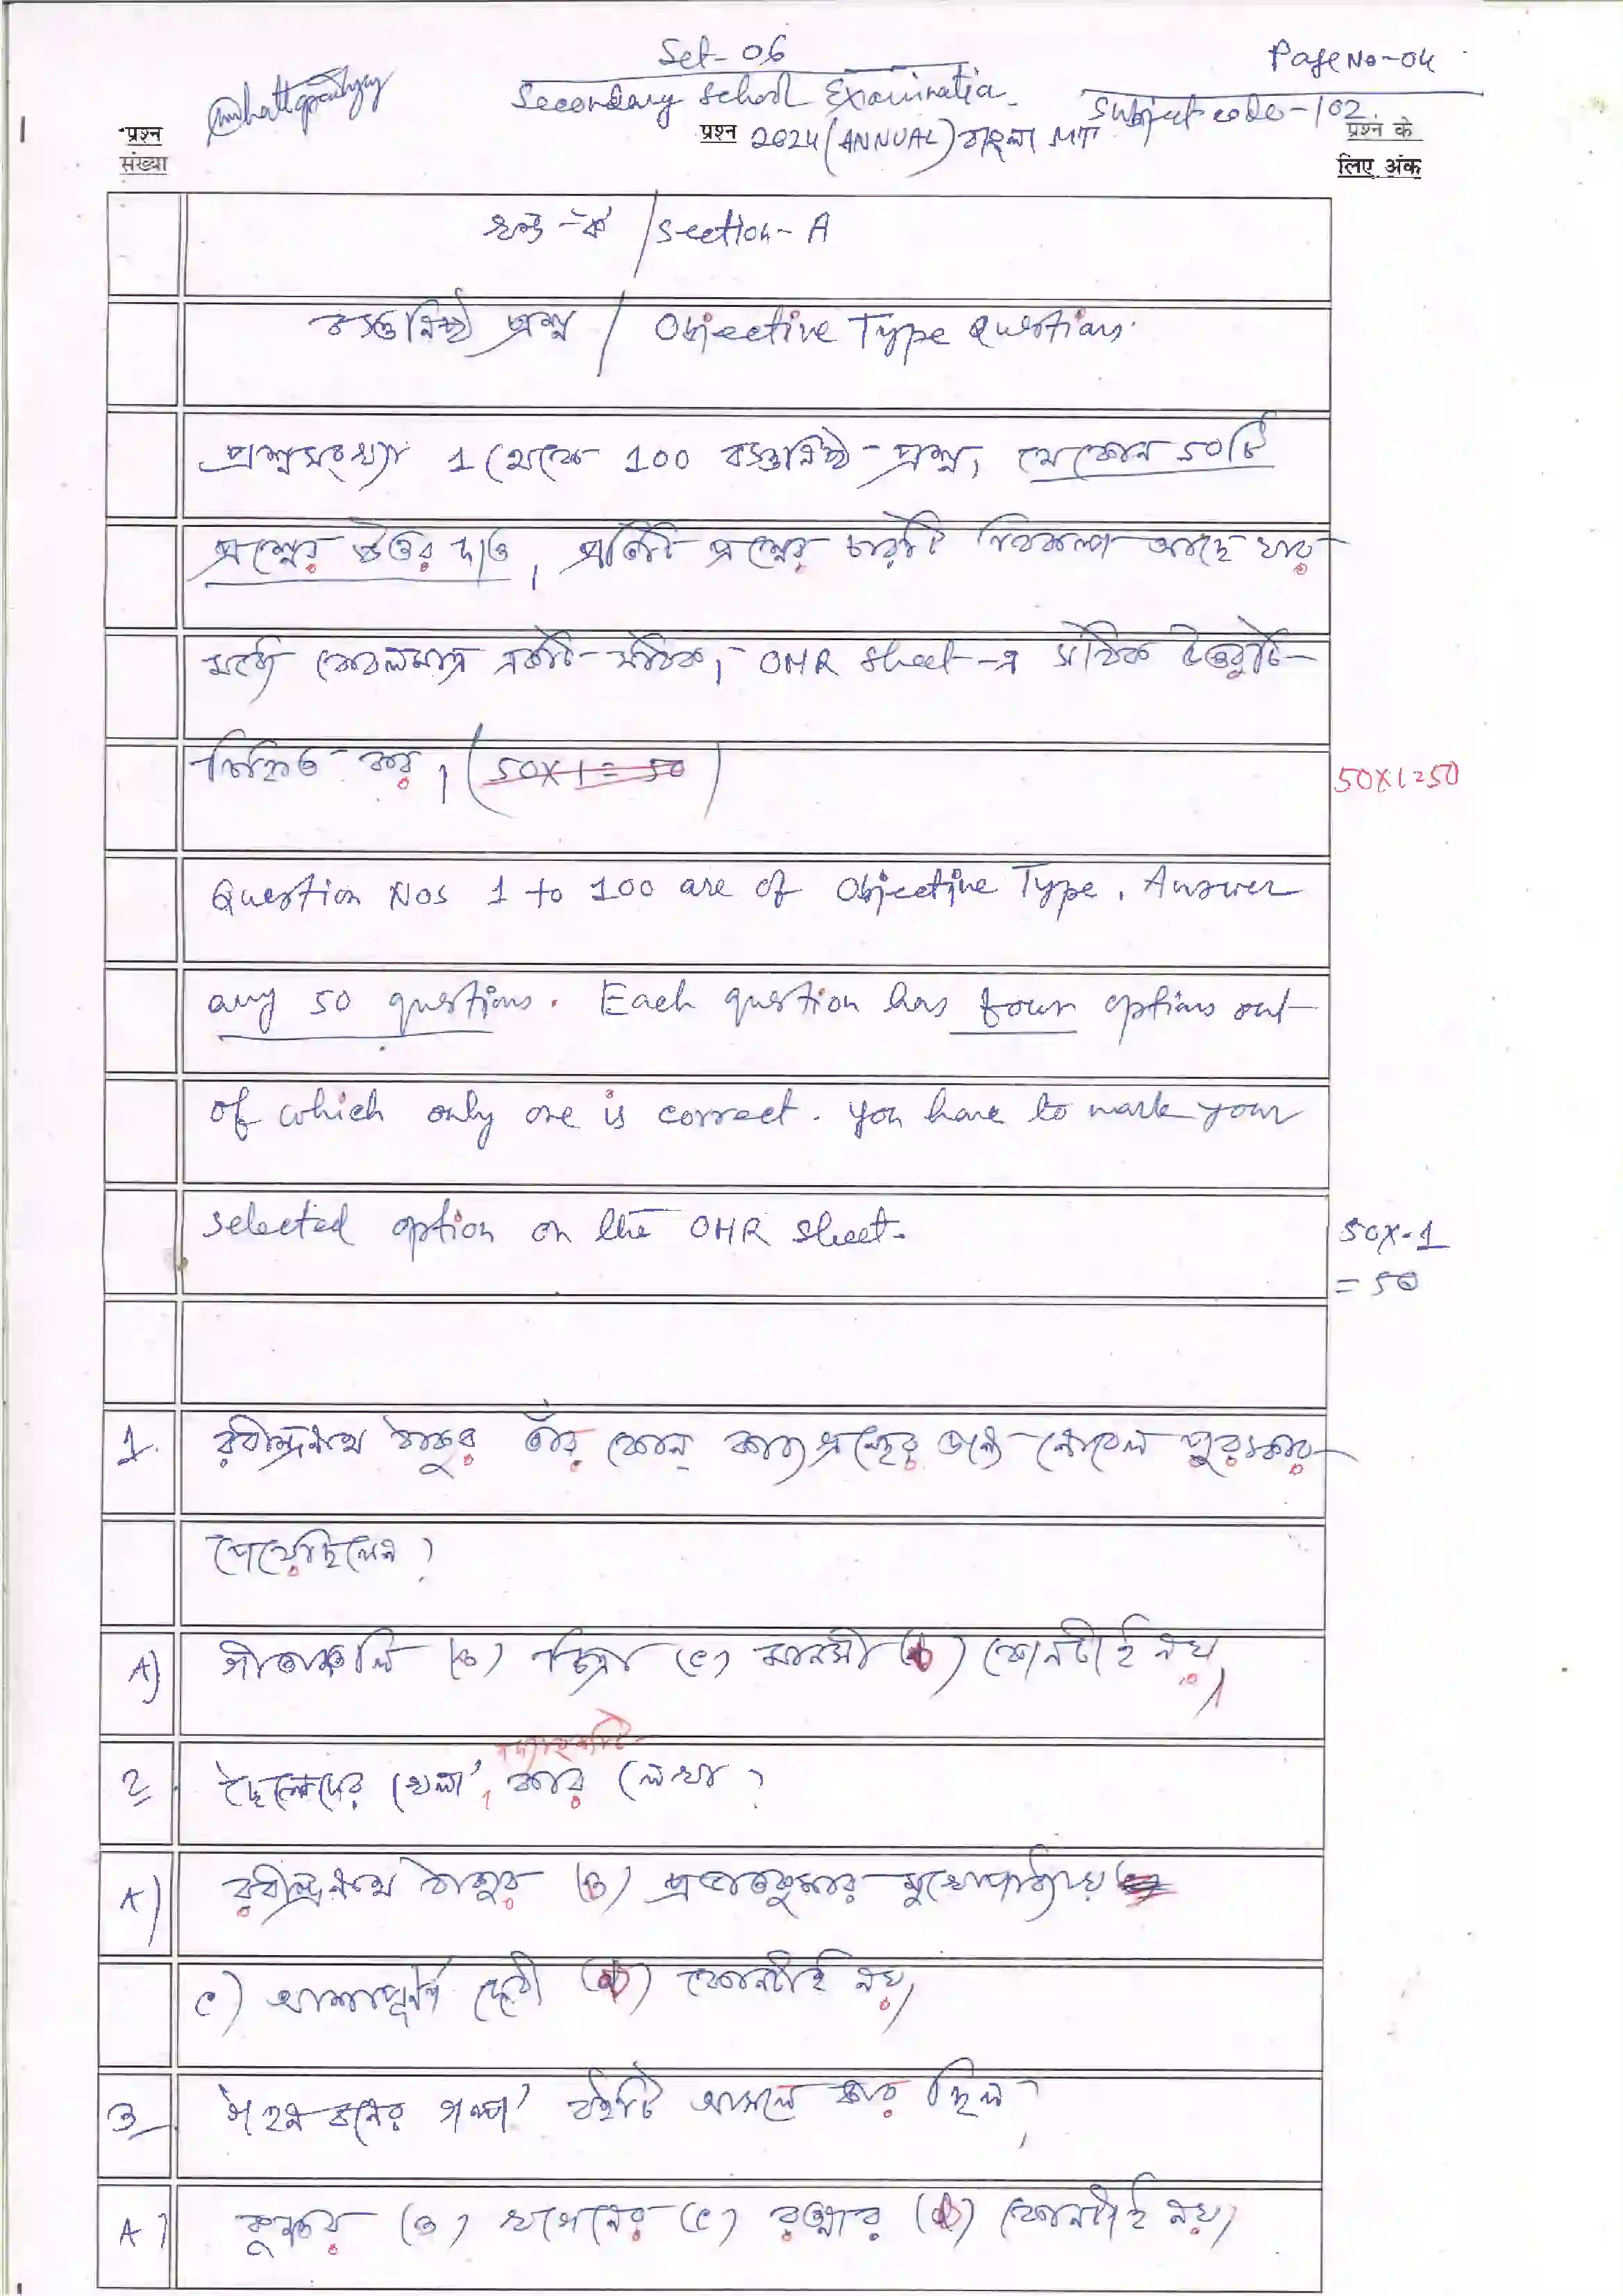 Set-06
Page No-04
Secondary School Examination
Subject code-102
प्रश्न संख्या
प्रश्न 2024 (ANNUAL) বাংলা MT
प्रश्न के लिए अंक
খণ্ড-ক / Section-A
বস্তুনিষ্ঠ প্রশ্ন / Objective Type Questions.
প্রশ্নসংখ্যা 1 থেকে 100 বস্তুনিষ্ঠ প্রশ্ন, যে কোন 50টি
প্রশ্নের উত্তর দাও, প্রতিটি প্রশ্নের চারটি বিকল্প আছে যার
মধ্যে কেবলমাত্র একটি সঠিক, OMR sheet-এ সঠিক উত্তরটি
চিহ্নিত কর, (50×1=50)
50×1=50
Question Nos 1 to 100 are of Objective Type. Answer
any 50 questions. Each question has four options out
of which only one is correct. You have to mark your
selected option on the OMR sheet.
50×1
= 50
1. রবীন্দ্রনাথ ঠাকুর তাঁর কোন্ কাব্যগ্রন্থের জন্যে নোবেল পুরস্কার
পেয়েছিলেন?
A) গীতাঞ্জলি (B) চিত্রা (C) মানসী (D) কোনটাই নয়,
2 ছেলেদের খেলা', কার লেখা?
A) রবীন্দ্রনাথ ঠাকুর (B) প্রভাতকুমার মুখোপাধ্যায়
C) আশাপূর্ণা দেবী (D) কোনটাই নয়,
3 গহন বনের গল্প' বইটি আসলে কার ছিল,
A) (B) খগেনের (C) রত্নার (D) কোনটাই নয়,